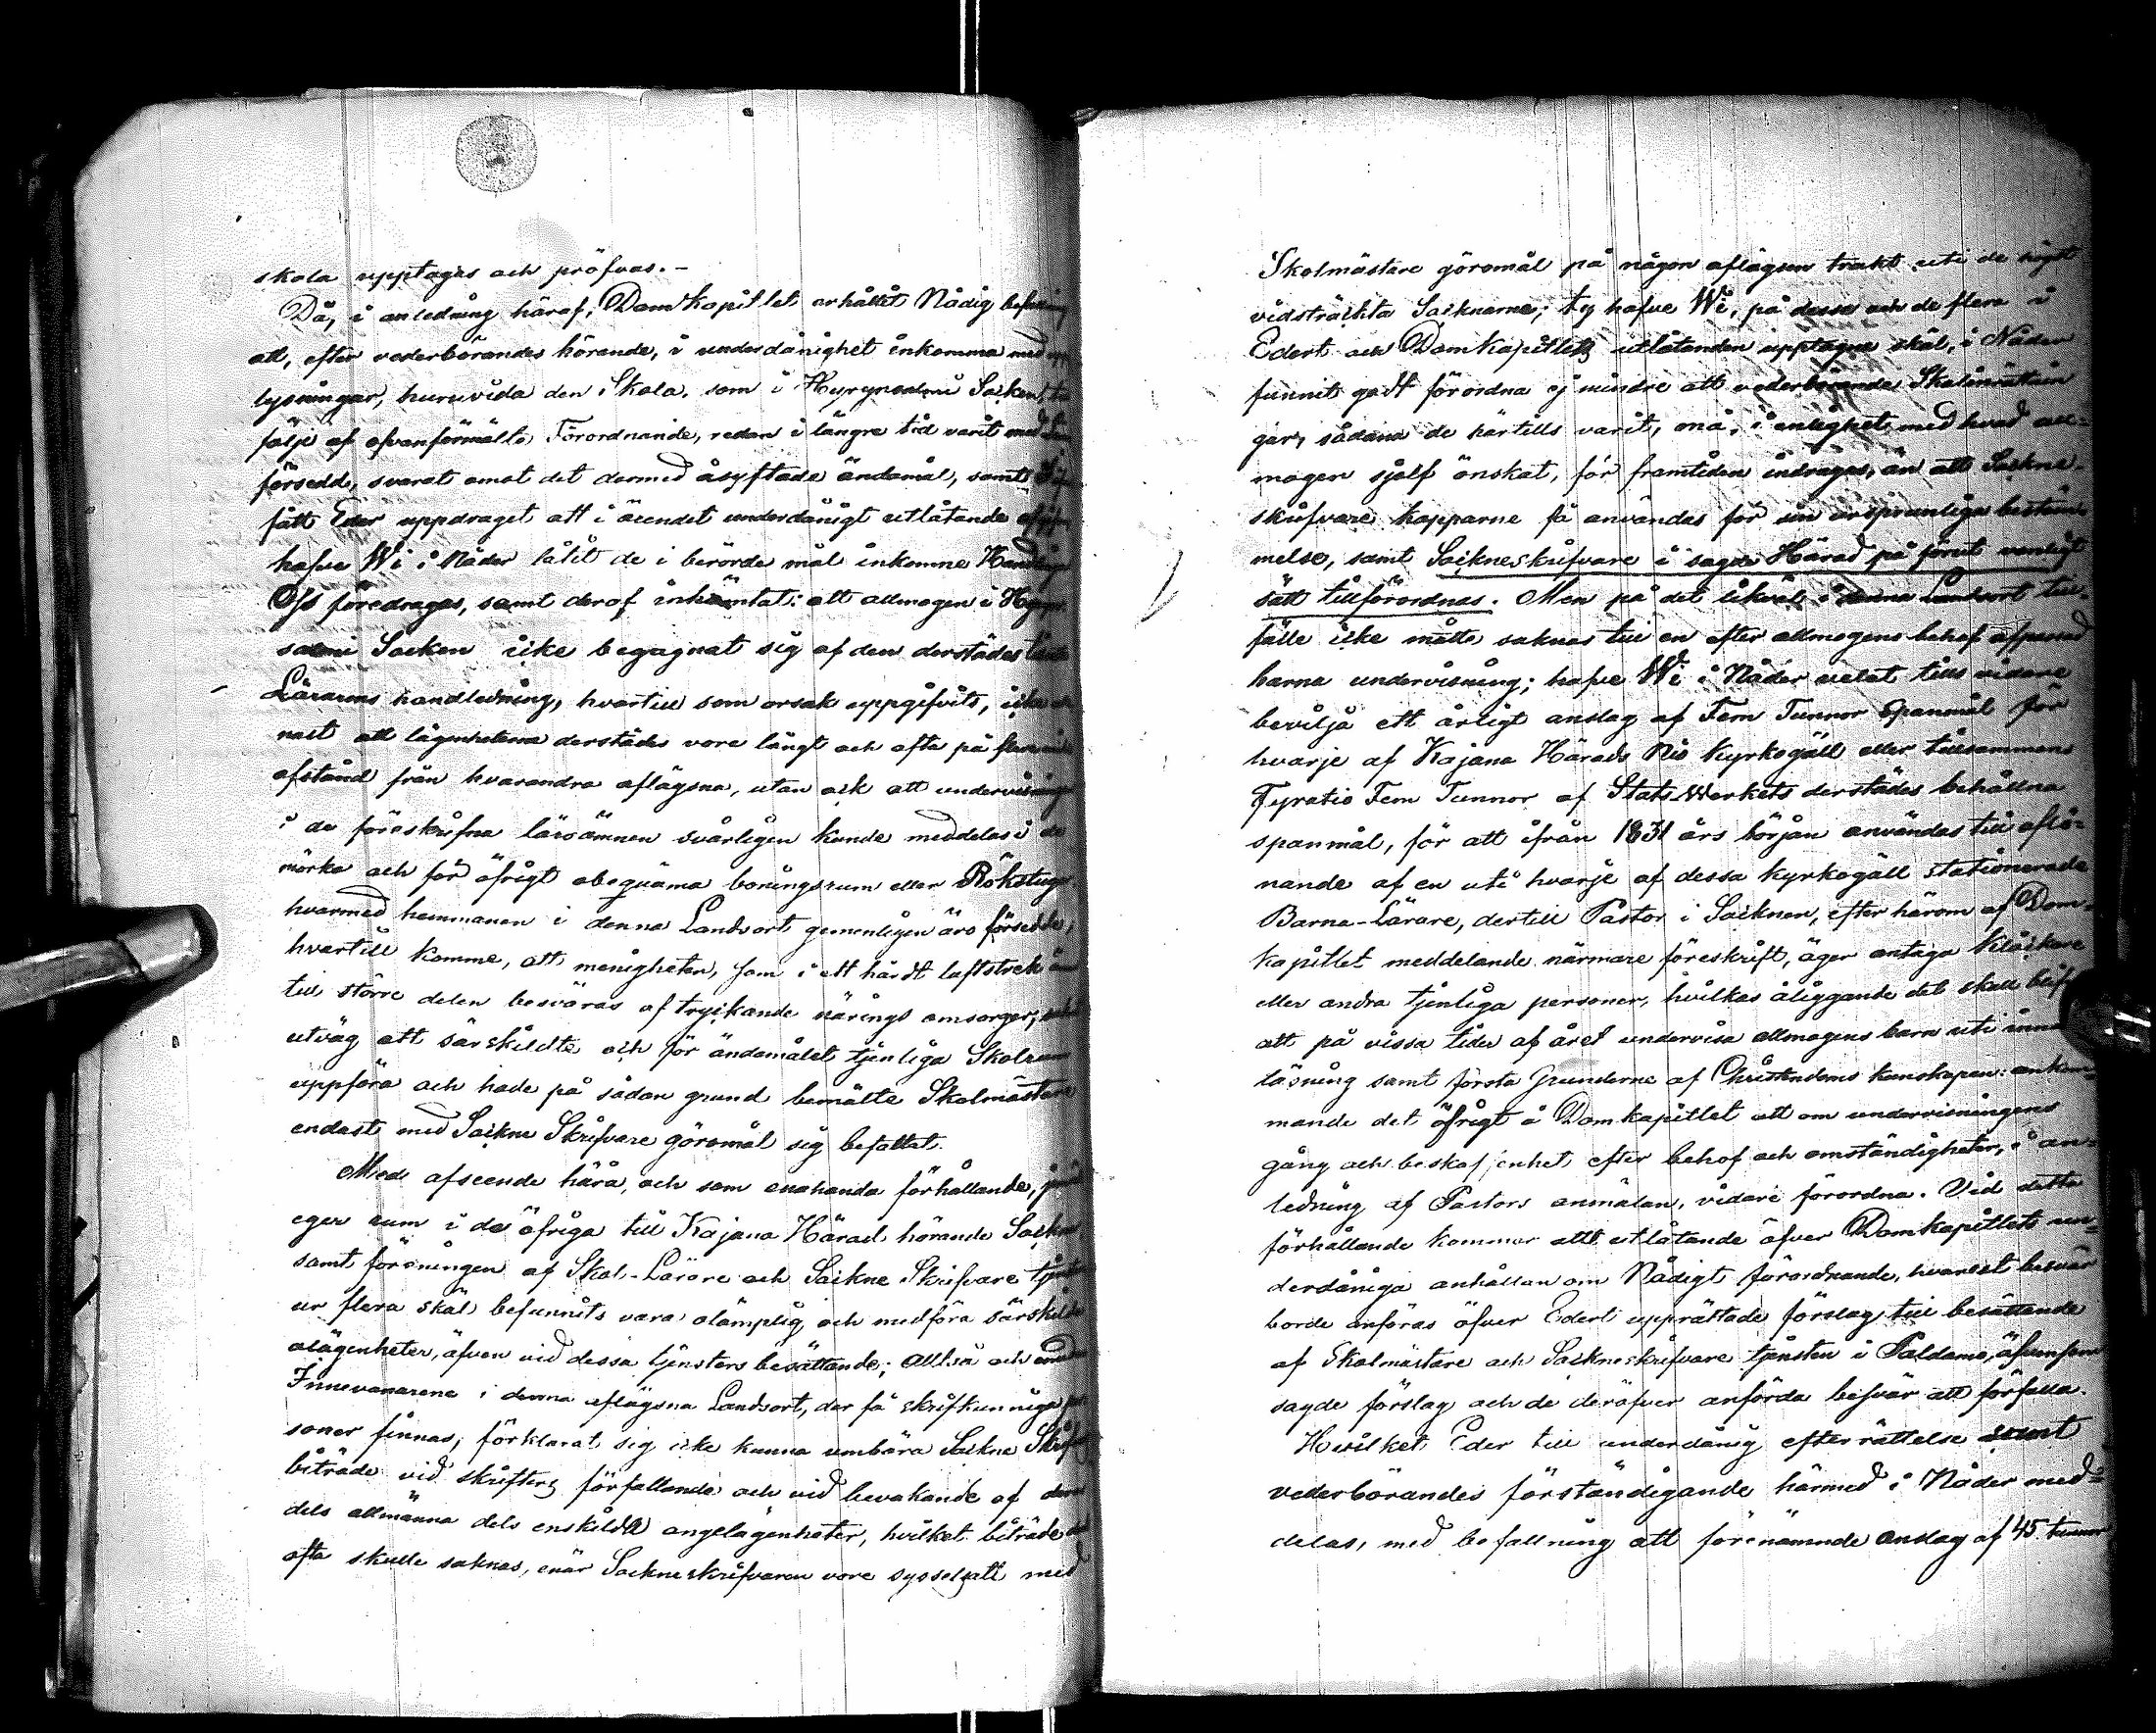 skola upptagas och pröfvas.-
Då, i anledning häraf, Domkapitlet erhållit Nådig befallning
att, efter vederbörandes hörande, i underdånighet inkomma med upp-
lysningar, huruvida den Skola, som i Hyrynsalmi Socken, till
följe af ofvanförmälte Förordnande, redan i längre tid varit med
försedd, svarat emot det dermed åsyftade ändamål, samt
fått Eder uppdraget att i ärendet underdånigt utlåtande
hafve Wi i Nåder låtit de i berörde mål inkomne Handlingar
Oss föredragas, samt deraf inhämtat: att allmogen i Hyryn-
salmi Socken icke begagnat sig af den derstädes
Lärarens handledning, hvartill som orsak uppgifvits, icke
nast att lägenheterna derstädes vore långt och ofta på flera
afstånd från hvarandra aflägsna, utan ock att undervisningen
i de föreskrifna läroämnen svårligen kunde meddelas i de
mörka och för öfrigt obequäma boningsrum eller Rökstugor
hvarmed hemmanen i denna Landsort gemenligen äro försedde,
hvartill komme, att menigheten, som i ett hårdt luftstrek
till större delen besväras af tryckande närings omsorger,
utväg att särskildte och för ändamålet tjenliga Skolrum
uppföra och hade på sådan grund bemälte Skolmästare
endast med Sockne Skrifvare göromål sig befattat.
Med afseende härå, och som enahanda förhållande,
eger rum i de öfriga till Kajana Härad hörande Socknar
samt föreningen af Skol-Lärare och Sockne Skrifvare
ur flera skäl befunnits vara olämplig och medföra särskilda
olägenheter, äfven vid dessa tjensters besättande; Alltså och
Innevånarene i denna aflägsna Landsort, der få skrifkunnige per-
soner finnas, förklarat sig icke kunna umbära Sockne
biträde vid skrifters författande och vid bevakande af deras
dels allmänna dels enskildta angelägenheter, hvilket biträde
ofta skulle saknas, enär Sockneskrifvaren vore sysselsatt med
Skolmästare göromål på någon aflägsen trakt uti de högst
vidsträckta Socknarne; ty hafve Wi, på dessa och de flera i
Edert och Domkapitlets utlåtanden upptagne skäl, i Nåder
funnit godt förordna ej mindre att vederbörande Skolinrättnin-
gar, sådana de härtills varit, må, i enlighet med hvad all-
mogen sjelf önskat, för framtiden indragas, än att Sockne-
skrifvare kapparne få användas för sin ursprunliga bestäm-
melse, samt Sockneskrifvare i sagde Härad på förut vanligt
sätt tillförordnas. Men på det likväl i denna Landsort till-
fälle icke måtte saknas till en efter allmogens behof afpassad
barna undervisning; hafve Wi i Nåder velat tills vidare
bevilja ett årligt anslag af Fem Tunnor Spanmål för
hvarje af Kajana Härads Nio Kyrkogäll eller tillsammans
Fyratio Fem Tunnor af Stats Werkets derstädes behållna
spanmål, för att ifrån 1831 års början användas till aflö-
nande af en uti hvarje af dessa kyrkogäll stationerade
Barna-Lärare, dertill Pastor i Socknen, efter härom af Dom-
kapitlet meddelande närmare föreskrift, äger antaga Klockare
eller andra tjenliga personer, hvilkas åliggande det skall blifva
att på vissa tider af året undervisa allmogens barn uti innan
läsning samt första Grunderne af Christendoms kunskapen: ankom-
mande det öfrigt å Domkapitlet att om undervisningens
gång och beskaffenhet efter behof och omständigheter, i an-
ledning af Pastors anmälan, vidare förordna. Vid detta
förhållande kommer att utlåtande öfver Domkapitlets un-
derdåniga anhållan om Nådigt förordnande, hvarest besvär
borde anföras öfver Edert upprättade förslag till besättande
af Skolmästare och Sockneskrifvare tjensten i Paldamo, äfvensom
sagde förslag och de deröfver anförda besvär att förfalla.
Hvilket Eder till underdånig efterrättelse samt
vederbörandes förständigande härmed i Nåder med-
delas, med befallning att förenämnde anslag af 45 tunnor